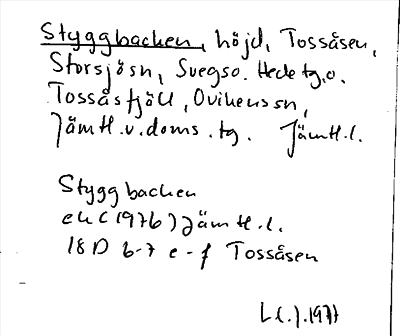 Styggbacken, höjd, Tossåsen,
Storsjösn, Svegso. Hede tg, o.
Tossåsfjäll, Ovikens sn,
Jämtl. v. doms. tg. Jämtl. l.
Styggbacken
ek (1976) Jämtl. l.
18D 6-7 e-f Tossåsen
1977